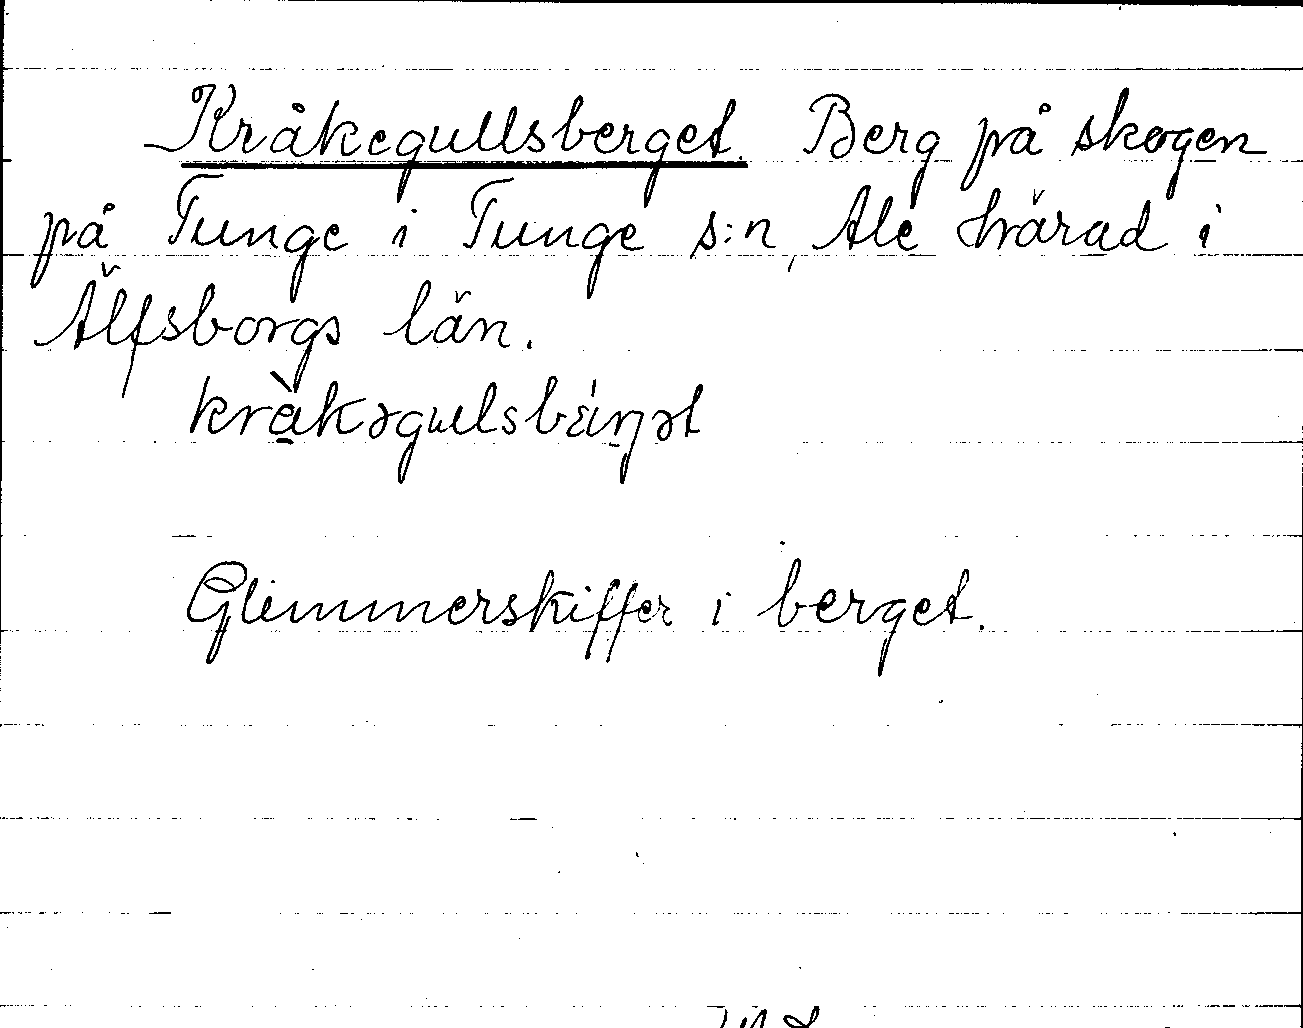 Kråkegullsberget. Berg på skogen
på Tunge i Tunge s:n, Ale härad i
Älfsborgs län.
kràkəgulsbæ̀rjət
Glimmerskiffer i berget.